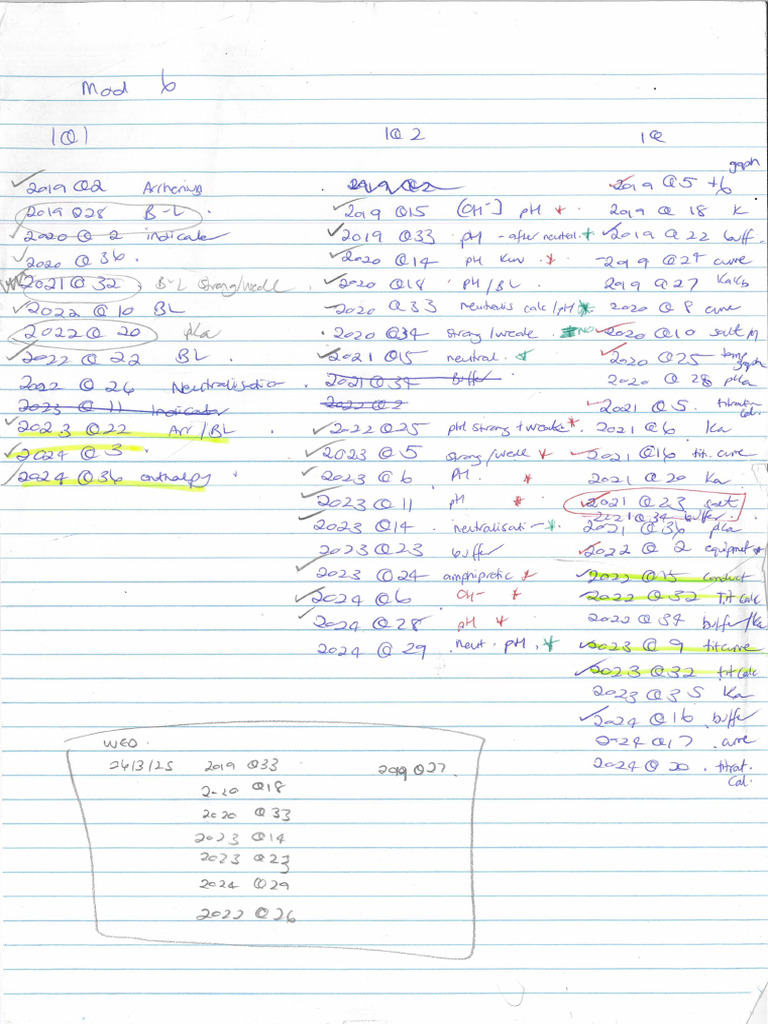 Mod 6
IQ1
2019 Q2 Arrhenius
2019 Q28 B-L
2020 Q 2 indicator
2020 Q 36.
2021 Q 32 B-L Strong/weak
2022 Q 10 BL
2022 Q 20 pKa
2022 Q 22 BL
2022 Q 26 Neutralisation
2023 Q 11 Indicator
2023 Q22 Arr/BL
2024 Q 3
2024 Q36 enthalpy
IQ 2
2019 Q2
2019 Q15 [OH-] pH *
2019 Q33 pH - after neutral. *
2020 Q14 pH *
2020 Q18 pH/BL
2020 Q33 neutralis calc/pH *
2020 Q34 strong/weak NO
2021 Q15 neutral. *
2021 Q34 buffer
2022 Q2
2022 Q25 pH strong + weak *
2023 Q 5 strong/weak *
2023 Q 6 PH. *
2023 Q 11 pH *
2023 Q14 neutralisation *
2023 Q23 buffer
2023 Q 24 amphiprotic *
2024 Q6 OH- *
2024 Q28 pH *
2024 Q 29 neut. pH. *
IQ
graph
2019 Q5 +6
2019 Q 18 K
2019 Q 22 buff.
2019 Q 27 curve
2019 Q 27 KaKb
2020 Q 8 curve
2020 Q10 salt
2020 Q25 temp graph
2020 Q 28 pKa
2021 Q 5. titration calc.
2021 Q 6 Ka
2021 Q16 tit. curve
2021 Q 20 Ka
2021 Q 23 salt
2021 Q 34 buffer.
2021 Q 36 pKa
2022 Q 2 equipment *
2022 Q15 conduct
2022 Q 32 Tit Calc
2022 Q 34 buffer/Ka
2023 Q 9 tit curve
2023 Q 32 tit calc
2023 Q35 Ka
2024 Q16 buffer
2024 Q17 curve
2024 Q 20 . titrat. Cal.
WED.
26/3/25 2019 Q33 2019 Q27.
2020 Q18
2020 Q33
2023 Q14
2023 Q23
2024 Q29
2022 Q26